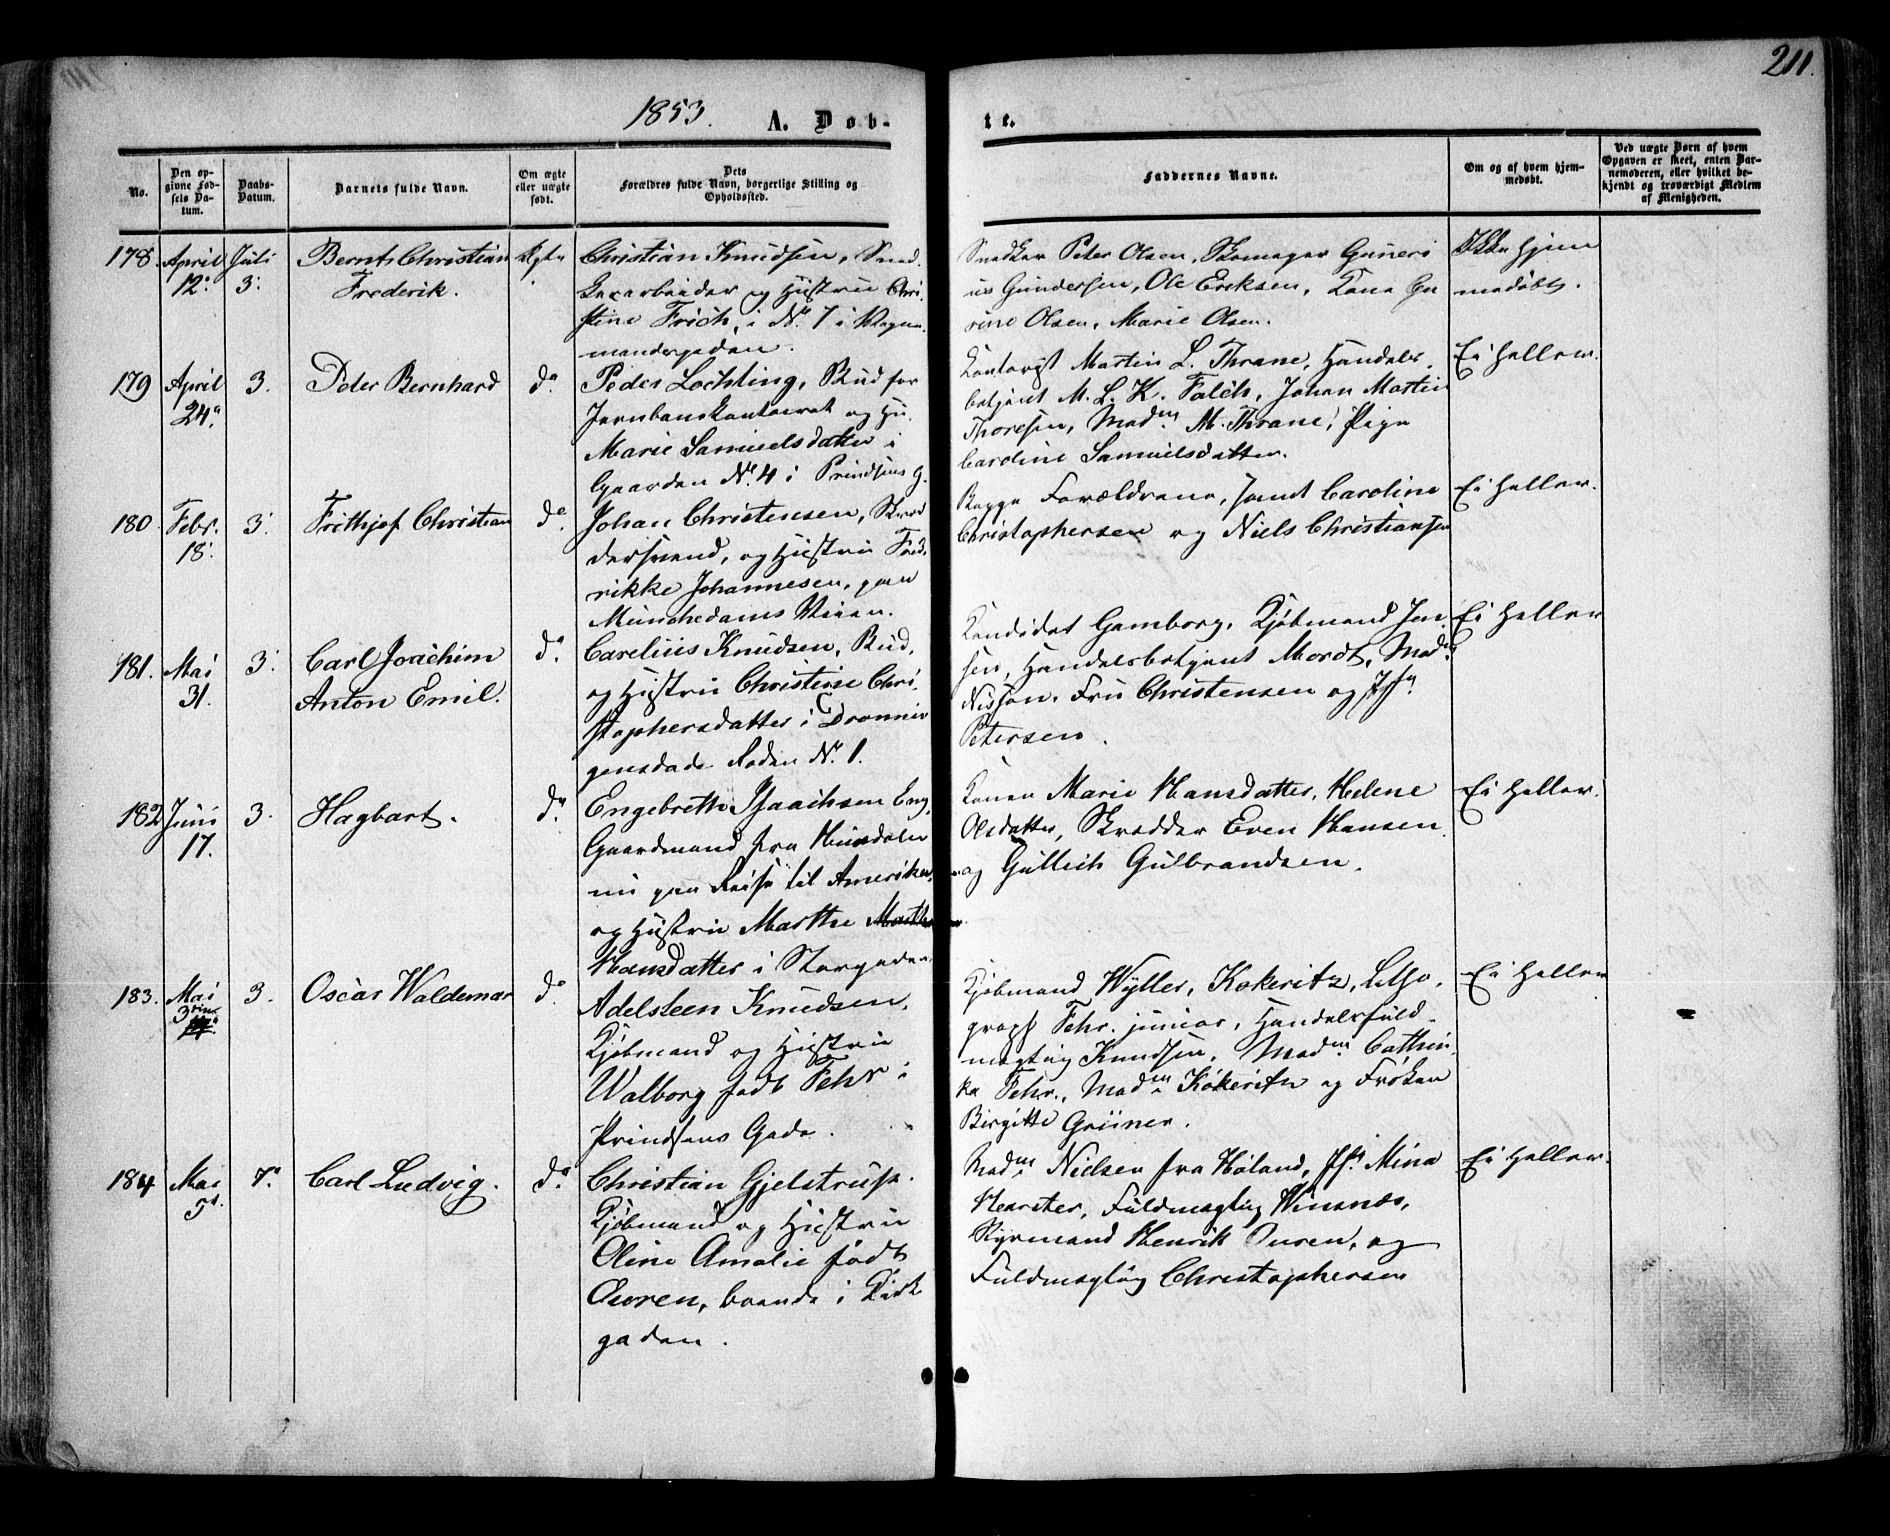 211.
1853.
A. Døb-
te.
No.
Den op-
givne Fød-
sels Da-
tum.
Daabs-
Datum.
Barnets fulde Navn.
Om ægte
eller uægte
født.
Dets
Forældres fulde Navn, borgerlige Stilling og
Opholdssted.
Faddernes Navne.
Om og af hvem hjem-
medøbt.
Ved uægte Børn af hvem
Opgaven er skeet, enten Bar-
nemoderen, eller hvilket be-
kjendt og troværdigt Medlem
af Menigheden.
178.
April
12.
Juli
3.
Bernt Christian
Frederik.
Ægte
Christian Knudsen, Sned-
kerarbeider og Hustru Chri-
stine Frich, i No. 7 i Vogn-
mandsgaden.
Snedker Peter Olsen, Skomager Guneri
us Gundersen, Ole Eriksen, Kone Gu
rine Olsen, Marie Olsen.
Ikke hjem
medøbt.
179
April
24.
3.
Peder Bernhard
do.
Peder Lochting, Bud for
Jernbanekontoret og Hu.
Marie Samuelsdatter i
Gaarden No. 4 i Prindsens G.
Kontorist Martin L. Thrane, Handels-
betjent M. L. K. Falch, Johan Martin
Thoresen, Madm. M. Thrane, Pige
Caroline Samuelsdatter.
Ei heller.
180
Febr.
18.
3.
Frithjof Christian
do.
Johan Christensen, Skræd
dersvend, og Hustru Fred-
rikke Johannesen, paa
Munchedams Veien.
Begge Forældrene, samt Caroline
Christophersen og Niels Christiansen
Ei heller.
181.
Mai
31.
3.
Carl Joachim
Anton Emil.
do.
Carelius Knudsen, Bud,
og Hustru Christine Chri-
stophersdatter i Dronnin
gens Roden No. 1.
Kandidat Gamborg, Kjøbmand Jen-
sen, Handelsbetjent Mordt, Madm.
Nissen, Fru Christensen og Jfr.
Petersen.
Ei heller
182
Juni
17.
3.
Hagbart.
do.
Engebreth Isachsen Eng,
Gaardmand fra
nu paa Reise til Amerika,
og Hustru Marthe
Hansdatter i Storgaden.
Konen Marie Hansdatter, Helene
Olsdatter, Skrædder Even Hansen
og Gullich Gulbrandsen.
Ei heller.
183.
Mai
3
3.
Oscar Waldemar
do.
Adelsteen Knudsen,
Kjøbmand og Hustru
Walborg født Fehr i
Prindsens Gade.
Kjøbmand Wyller, Kokeritz, Litho-
graph Fehr. junior, Handelsfuld-
mægtig Knudsen, Madm. Cathin-
ka Fehr., Madm. Kokeritz og Frøken
Birgitte Grüner.
Ei heller
184
Mai
5.
7.
Carl Ludvig.
do.
Christian Gjelstrup.
Kjøbmand og Hustru
Oline Amalie født
Ouren, boende i Kirk
gaden.
Madm. Nielsen fra Høland, Jfr. Mina
Harster, Fuldmægtig Winsnæs,
Styrmand Henrik Ouren, og
Fuldmægtig Christophersen
Ei heller.